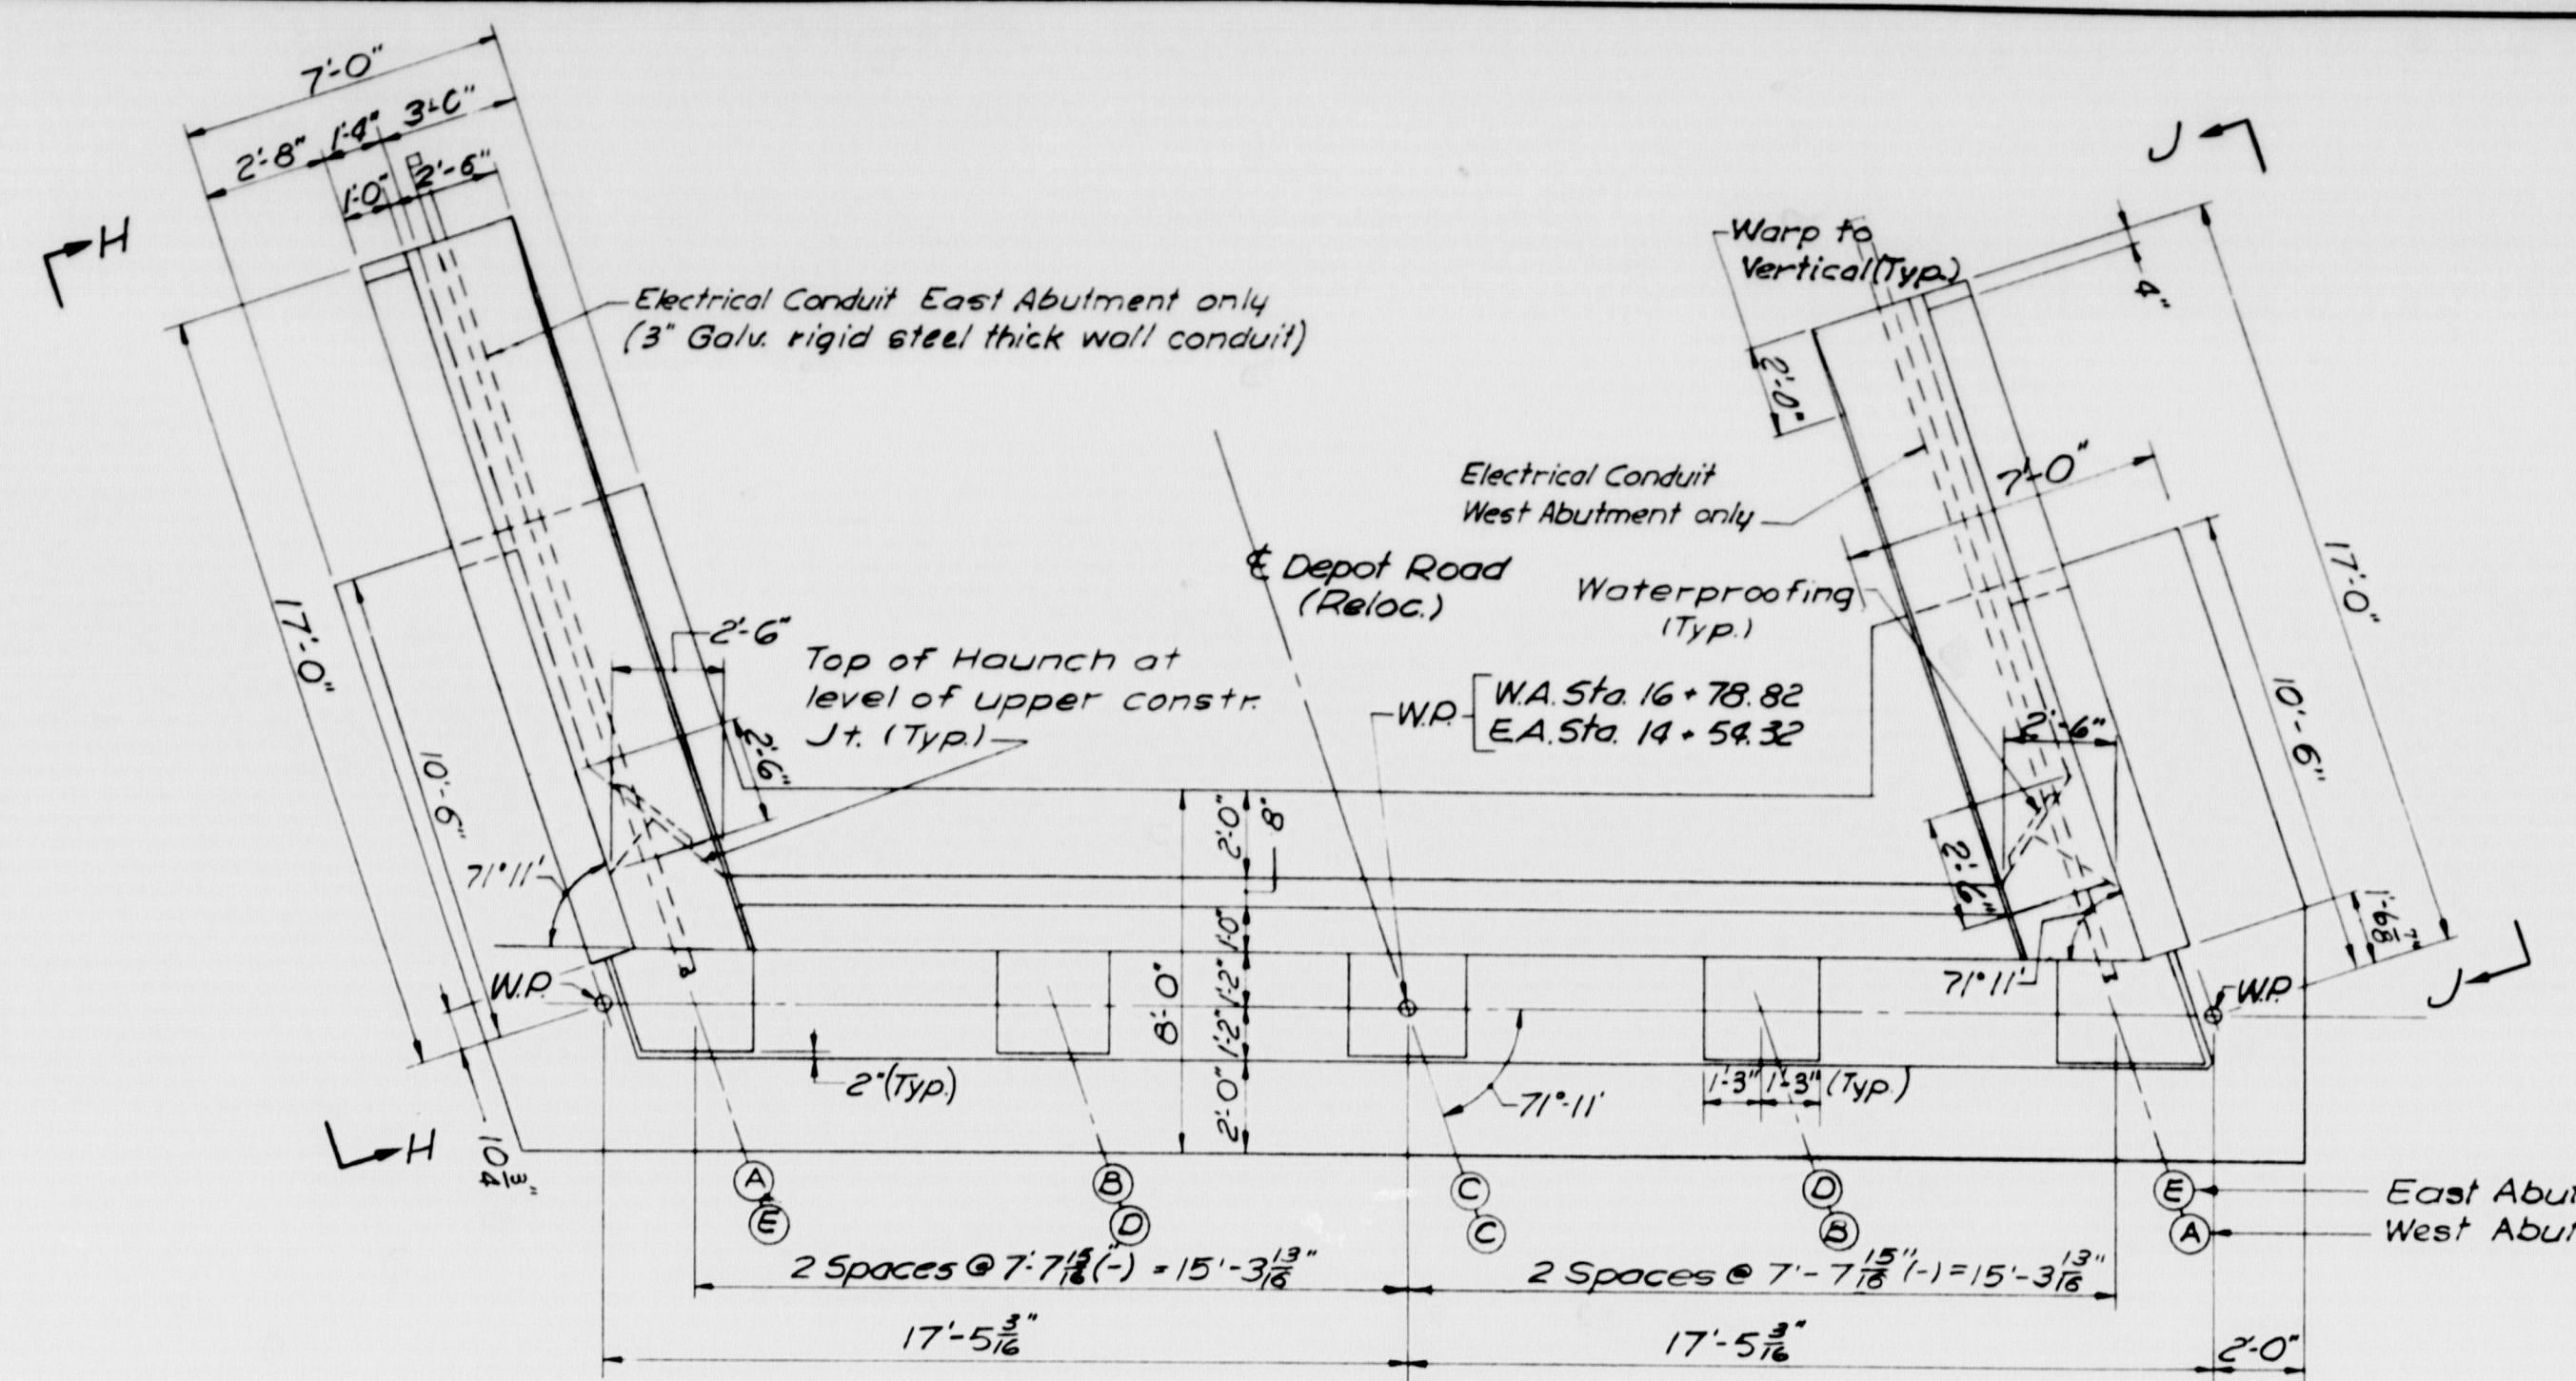 7'-0"
2'-8" 1'-4" 3'-0"
1'-0" 2'-6"
H
J
Warp to
Vertical (Typ.)
4"
Electrical Conduit East Abutment only
(3" Galv. rigid steel thick wall conduit)
2'-0"
7'-0"
Electrical Conduit
West Abutment only
17'-0"
℄ Depot Road
(Reloc.)
Waterproofing
(Typ.)
17'-0"
2'-6"
Top of Haunch at
level of upper constr.
Jt. (Typ.)
W.P.
W.A. Sta. 16 + 78.82
E.A. Sta. 14 + 54.32
10'-6"
2'-6"
2'-6"
10'-6"
2'-0"
8"
2'-6"
71°11'
1'-6 7/8"
1'-0"
W.P.
8'-0"
1'-2"
1'-2"
71°11'
W.P.
J
2" (Typ.)
2'-0"
71°-11'
1'-3" 1'-3" (Typ.)
H
10 3/4"
A B C D E East Abut
E D C B A West Abut
2 Spaces @ 7'-7 15/16" (-) = 15'-3 13/16"
2 Spaces @ 7'-7 15/16" (-) = 15'-3 13/16"
17'-5 3/16"
17'-5 3/16"
2'-0"